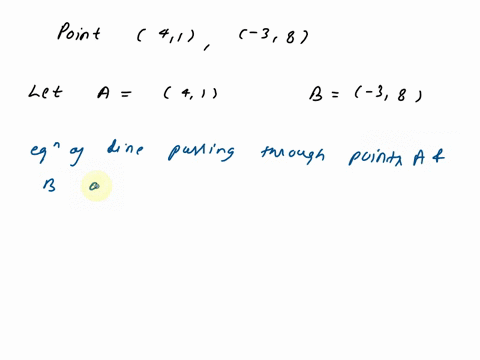 Point (4,1), (-3,8)
Let A = (4,1) B = (-3,8)
eqn of line passing through points A &
B